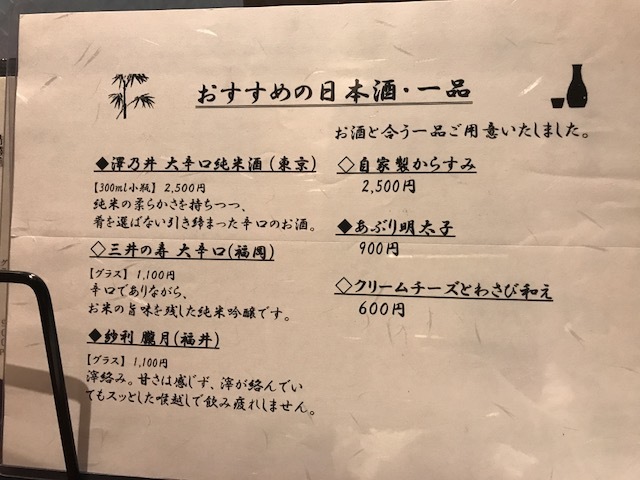 おすすめの日本酒・一品
お酒と合う一品ご用意いたしました。
◆澤乃井 大辛口純米酒(東京)
【300ml小瓶】2,500円
純米の柔らかさを持ちつつ、
肴を選ばない引き締まった辛口のお酒。
◇三井の寿 大辛口(福岡)
【グラス】1,100円
辛口でありながら、
お米の旨味を残した純米吟醸です。
◆紗利 朧月(福井)
【グラス】1,100円
滓絡み。甘さは感じず、滓が絡んでい
てもスッとした喉越しで飲み疲れしません。
◇自家製からすみ
2,500円
◆あぶり明太子
900円
◇クリームチーズとわさび和え
600円